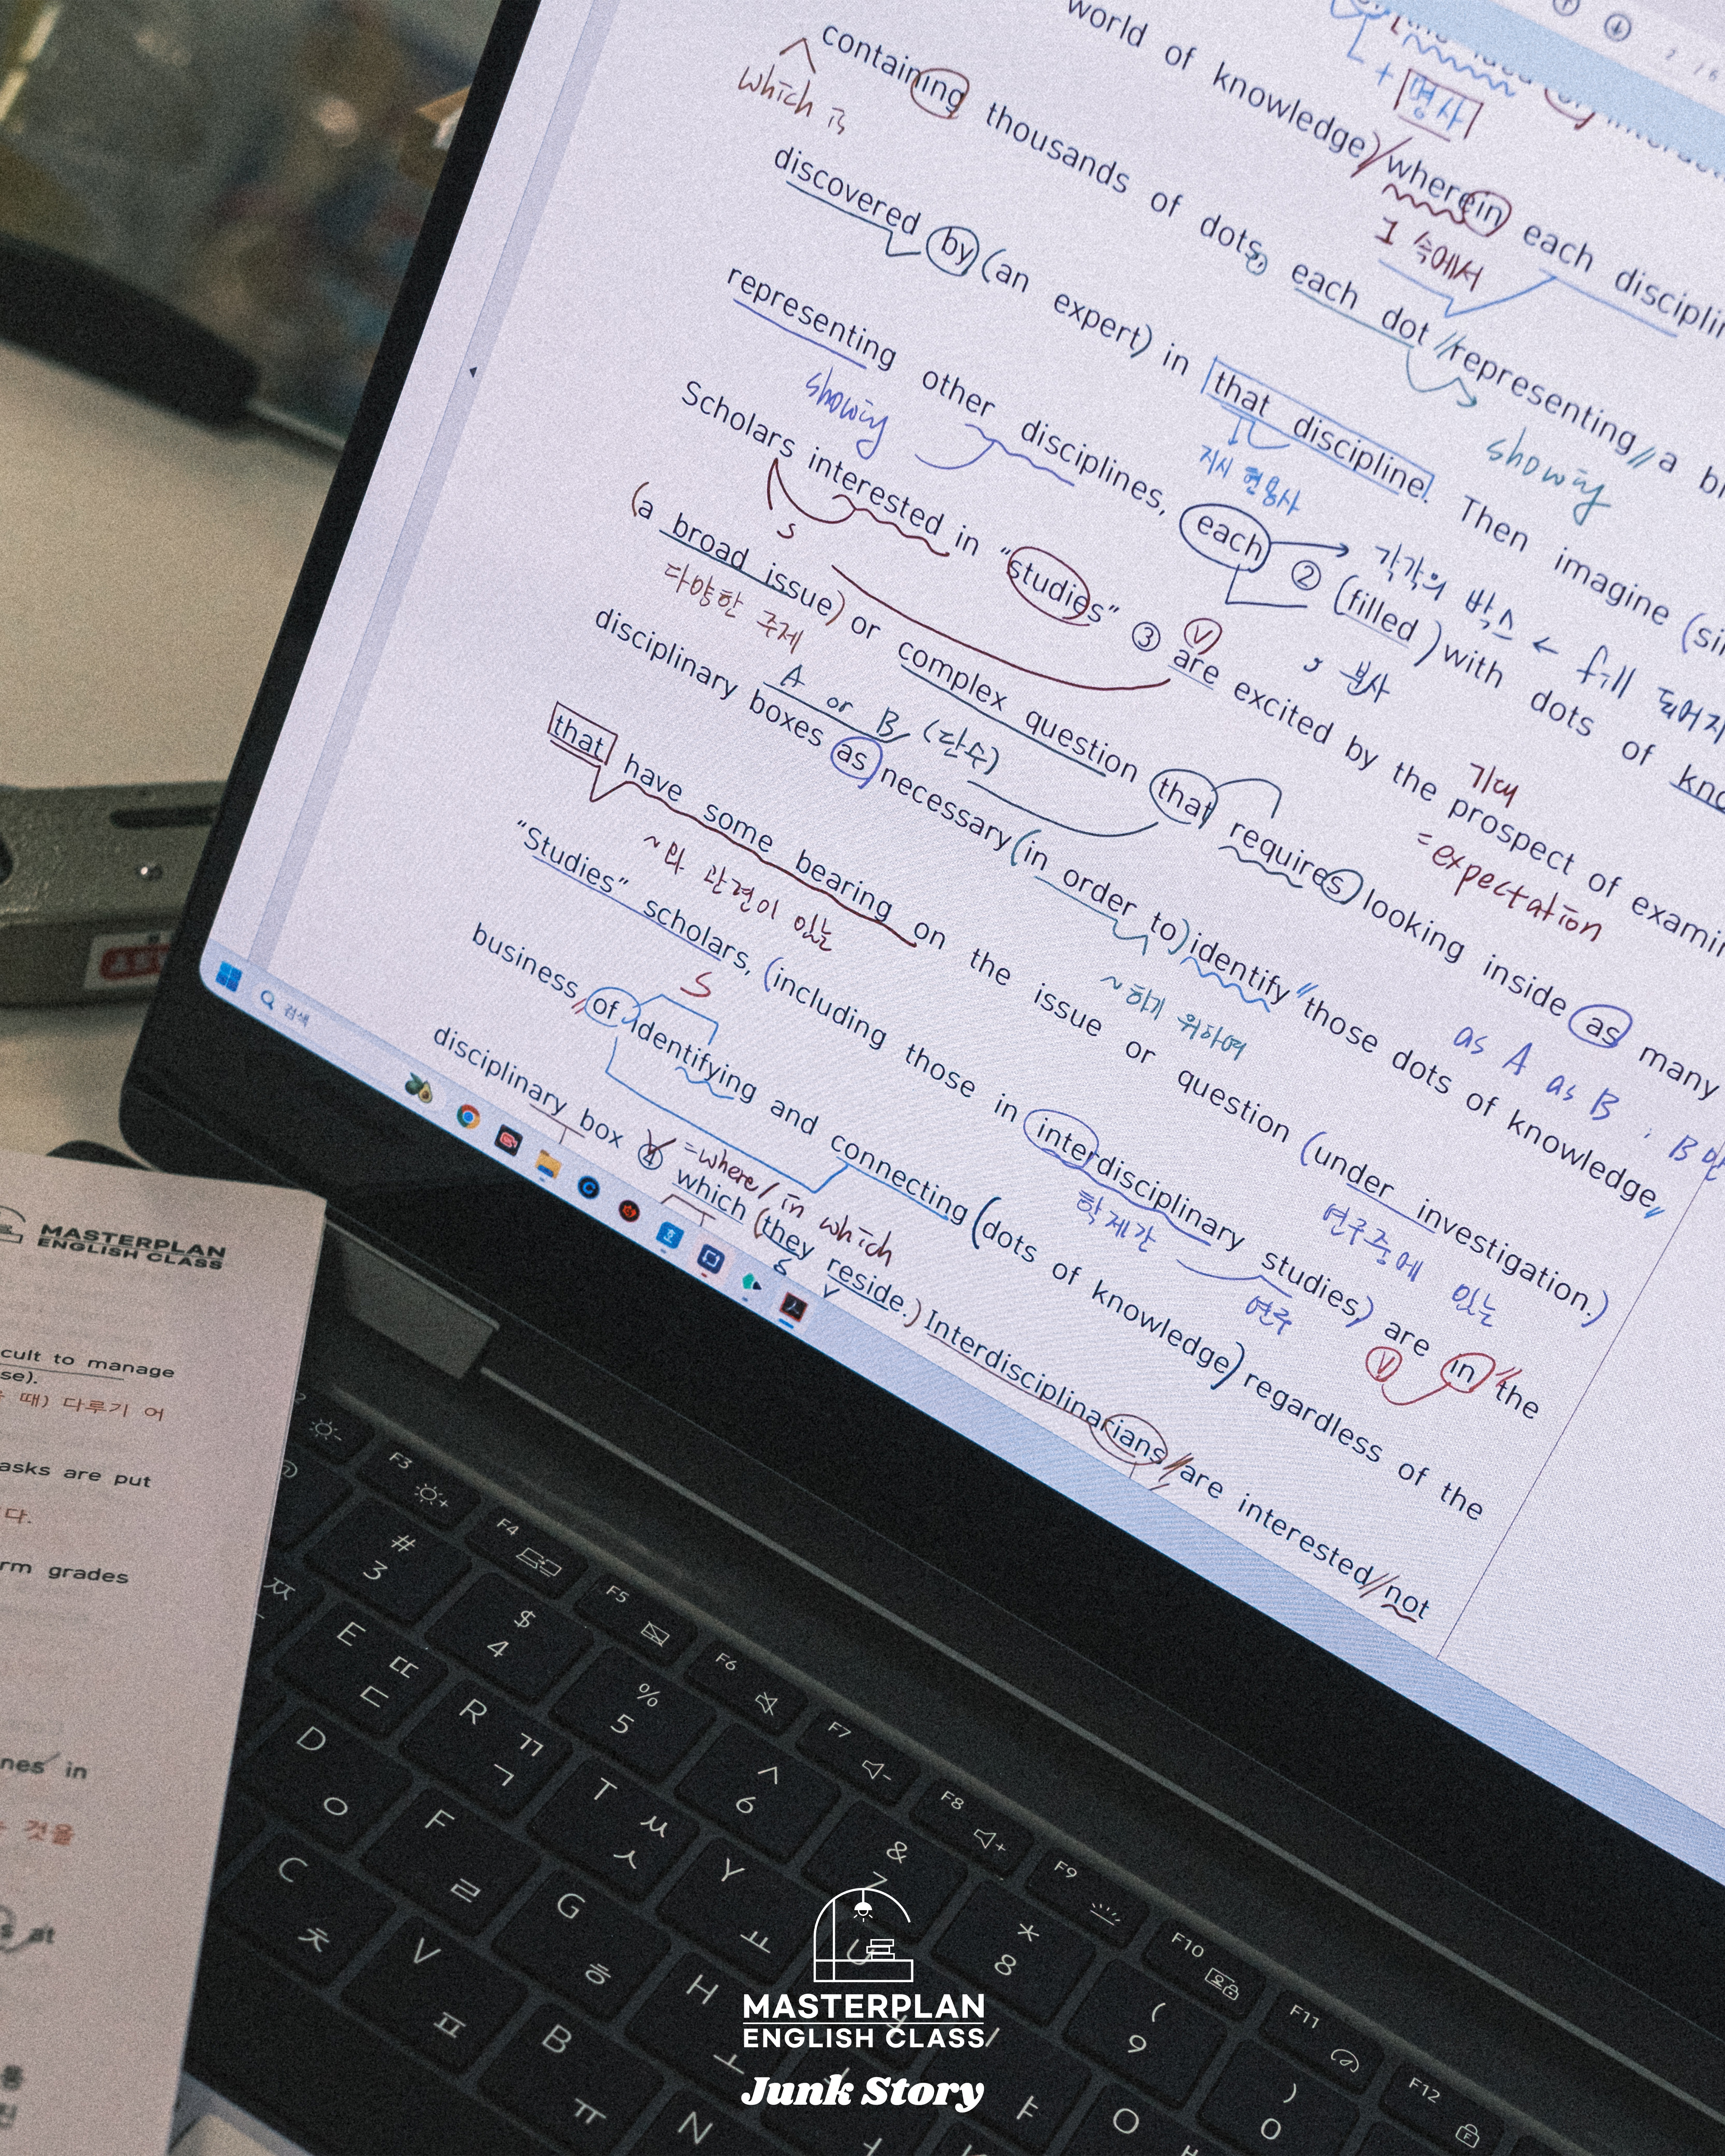 world of knowledge) wherein each
+ 명사
containing thousands of dots, each dot representing a
which is
속에서
discovered by (an expert) in that discipline. Then imagine
showing
지시 형용사
representing other disciplines, each ② (filled) with dots of
showing
각각의 박스 ← fill
부사
Scholars interested in "studies" ③ are excited by the prospect of
S
V
기대
= expectation
(a broad issue) or complex question that requires looking inside as many
다양한 주제
A or B (단수)
as A as B
disciplinary boxes as necessary (in order to) identify those dots of knowledge,
~하기 위하여
that have some bearing on the issue or question (under investigation.)
~와 관련이 있는
연구중에 있는
"Studies" scholars, (including those in interdisciplinary studies) are in the
S
학제간
연구
V
business of identifying and connecting (dots of knowledge) regardless of the
disciplinary box ④ which (they reside.) Interdisciplinarians are interested not
=where/ in which
S
V
검색
MASTERPLAN
ENGLISH CLASS
cult to manage
se).
때) 다루기 어
asks are put
다.
rm grades
nes in
것을
at
F3
F4
F5
F6
F7
F8
F9
F10
F11
F12
# 3
$ 4
% 5
^ 6
& 7
* 8
( 9
) 0
ㅉ
E ㄸ ㄷ
R ㄲ ㄱ
T ㅆ ㅅ
Y ㅛ
U
O
D ㅇ
F ㄹ
G ㅎ
H ㅗ
C ㅊ
V ㅍ
B ㅠ
N
MASTERPLAN
ENGLISH CLASS
Junk Story